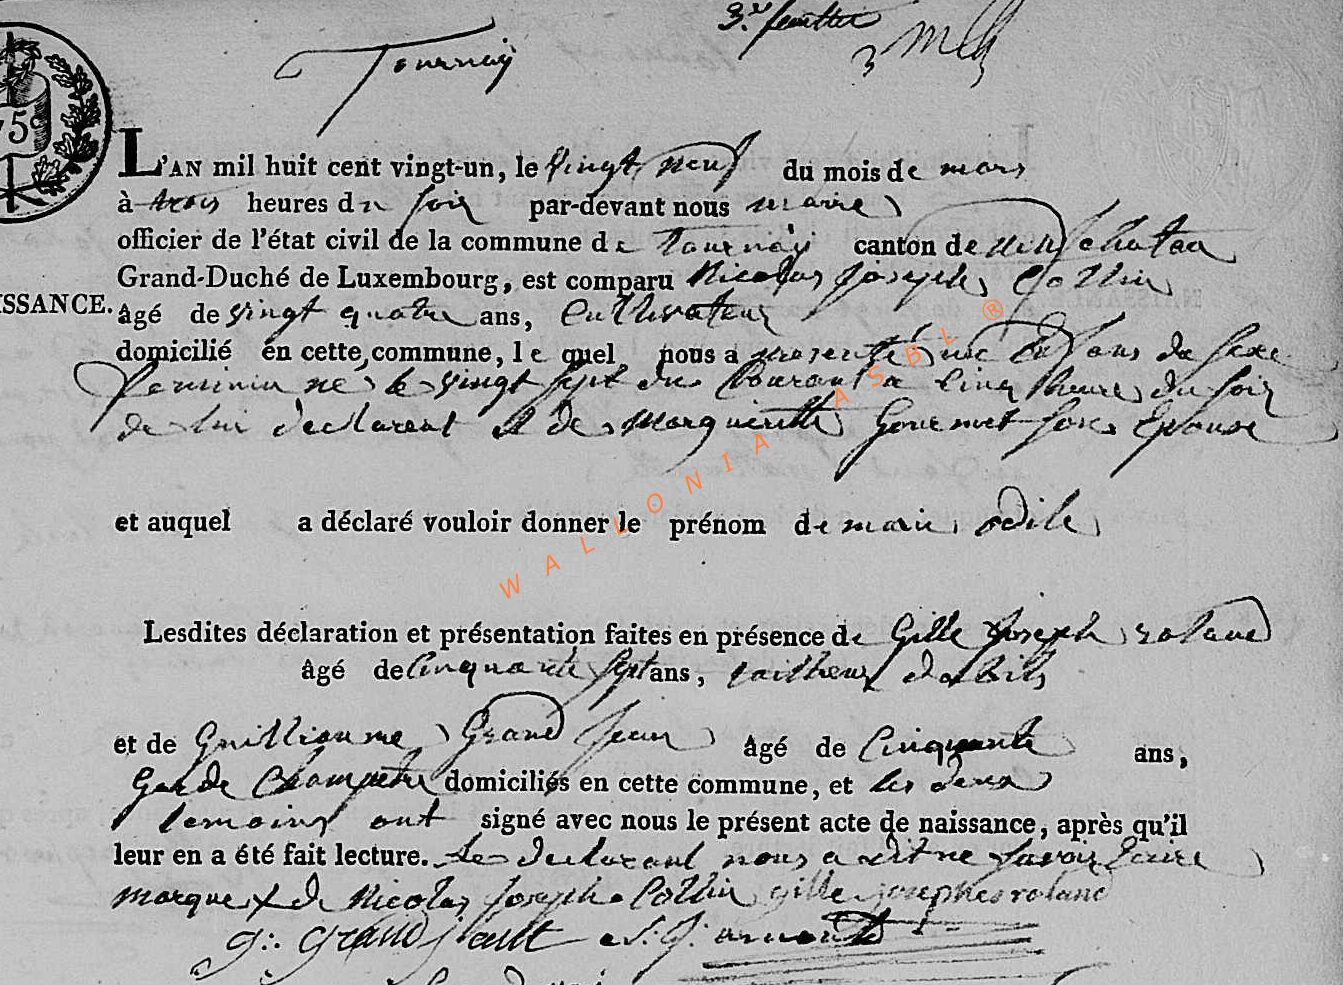 3.e feuillet
Tournay
75c
L'AN mil huit cent vingt-un, le vingt neuf du mois de mars
à trois heures du soir par-devant nous maire
officier de l'état civil de la commune de Tournay canton de neufchateau
Grand-Duché de Luxembourg, est comparu Nicolas Joseph Collin
ISSANCE.
âgé de vingt quatre ans, Cultivateur
domicilié en cette commune, le quel nous a presenté une Enfans de sexe
feminin né le vingt sept du Courant a Cinq heure du soir
de lui declarent et de Margueritte Gourmet son Epouse
et auquel a déclaré vouloir donner le prénom de marie odile
Lesdites déclaration et présentation faites en présence de Gille Joseph roland
âgé de Cinquante sept ans, tailleur d'abits
et de Guilliaume Grand Jean âgé de Cinquante ans,
Garde Champetre domiciliés en cette commune, et les deux
temoins ont signé avec nous le présent acte de naissance, après qu'il
leur en a été fait lecture. Le declarant nous a dit ne savoir Ecrire
marque X de Nicolas Joseph Collin gille josephes roland
g: grand jean
WALLONIA ASBL ®